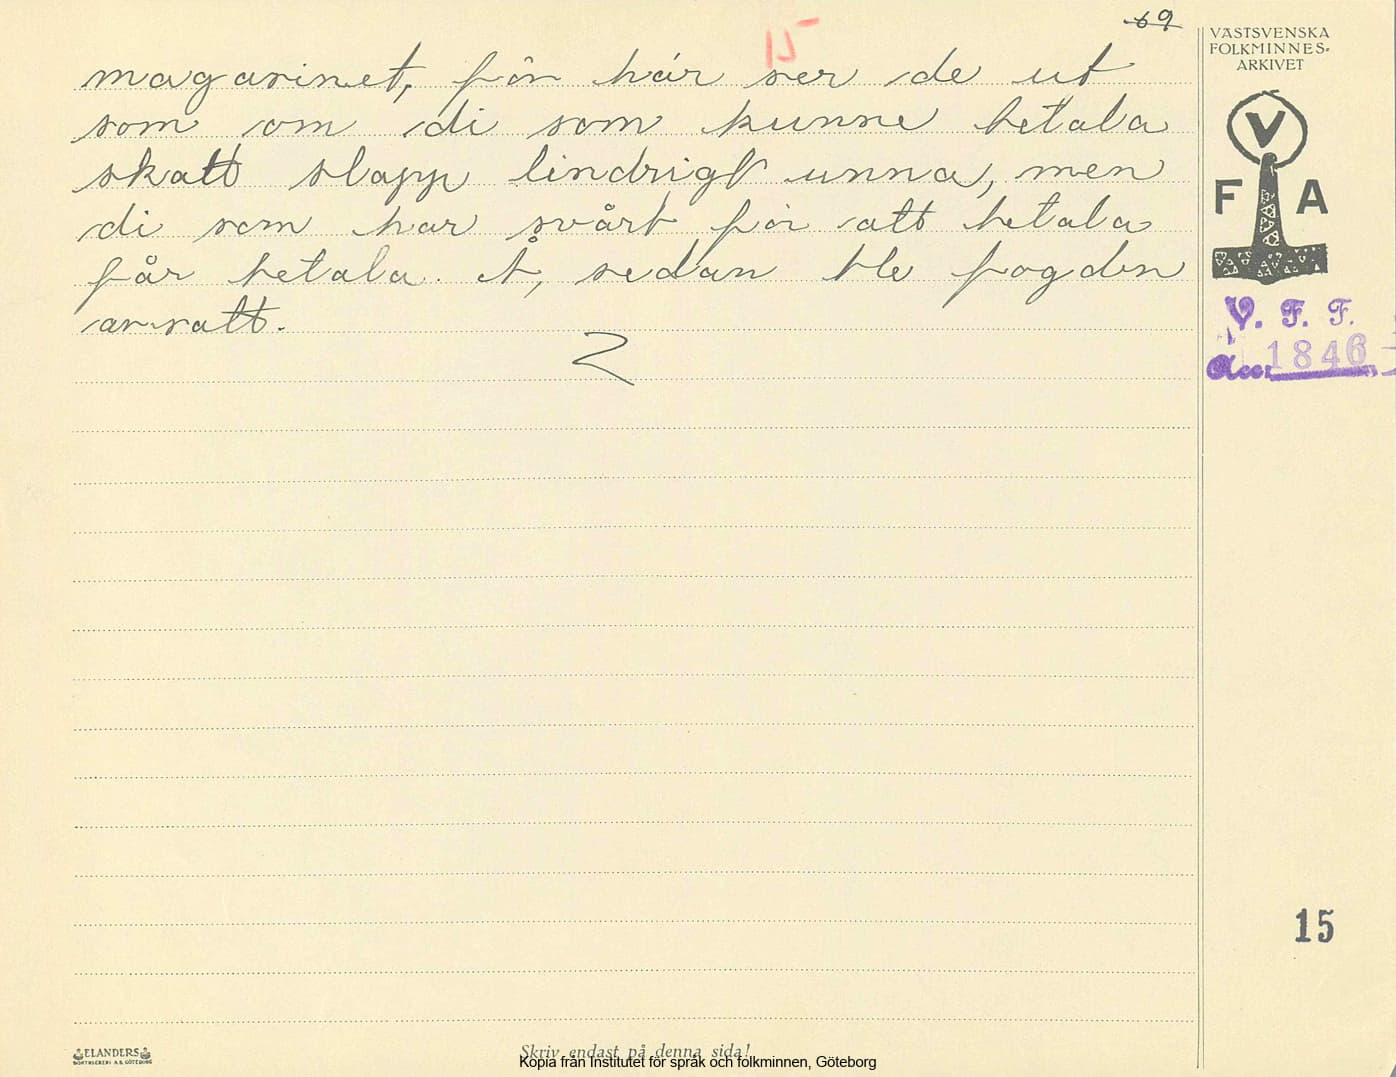 69
15
VÄSTSVENSKA
FOLKMINNES-
ARKIVET
magasinet, för här ser de ut
som om di som kunne betala
skatt slapp lindrigt unna, men
di som har svårt för att betala
får betala. Å, sedan ble fogden
avsatt.
V
F A
V. F. F.
Acc. 1846
15
ELANDERS
BOKTRYCKERI A.B. GÖTEBORG
Skriv endast på denna sida!
Kopia från Institutet för språk och folkminnen, Göteborg